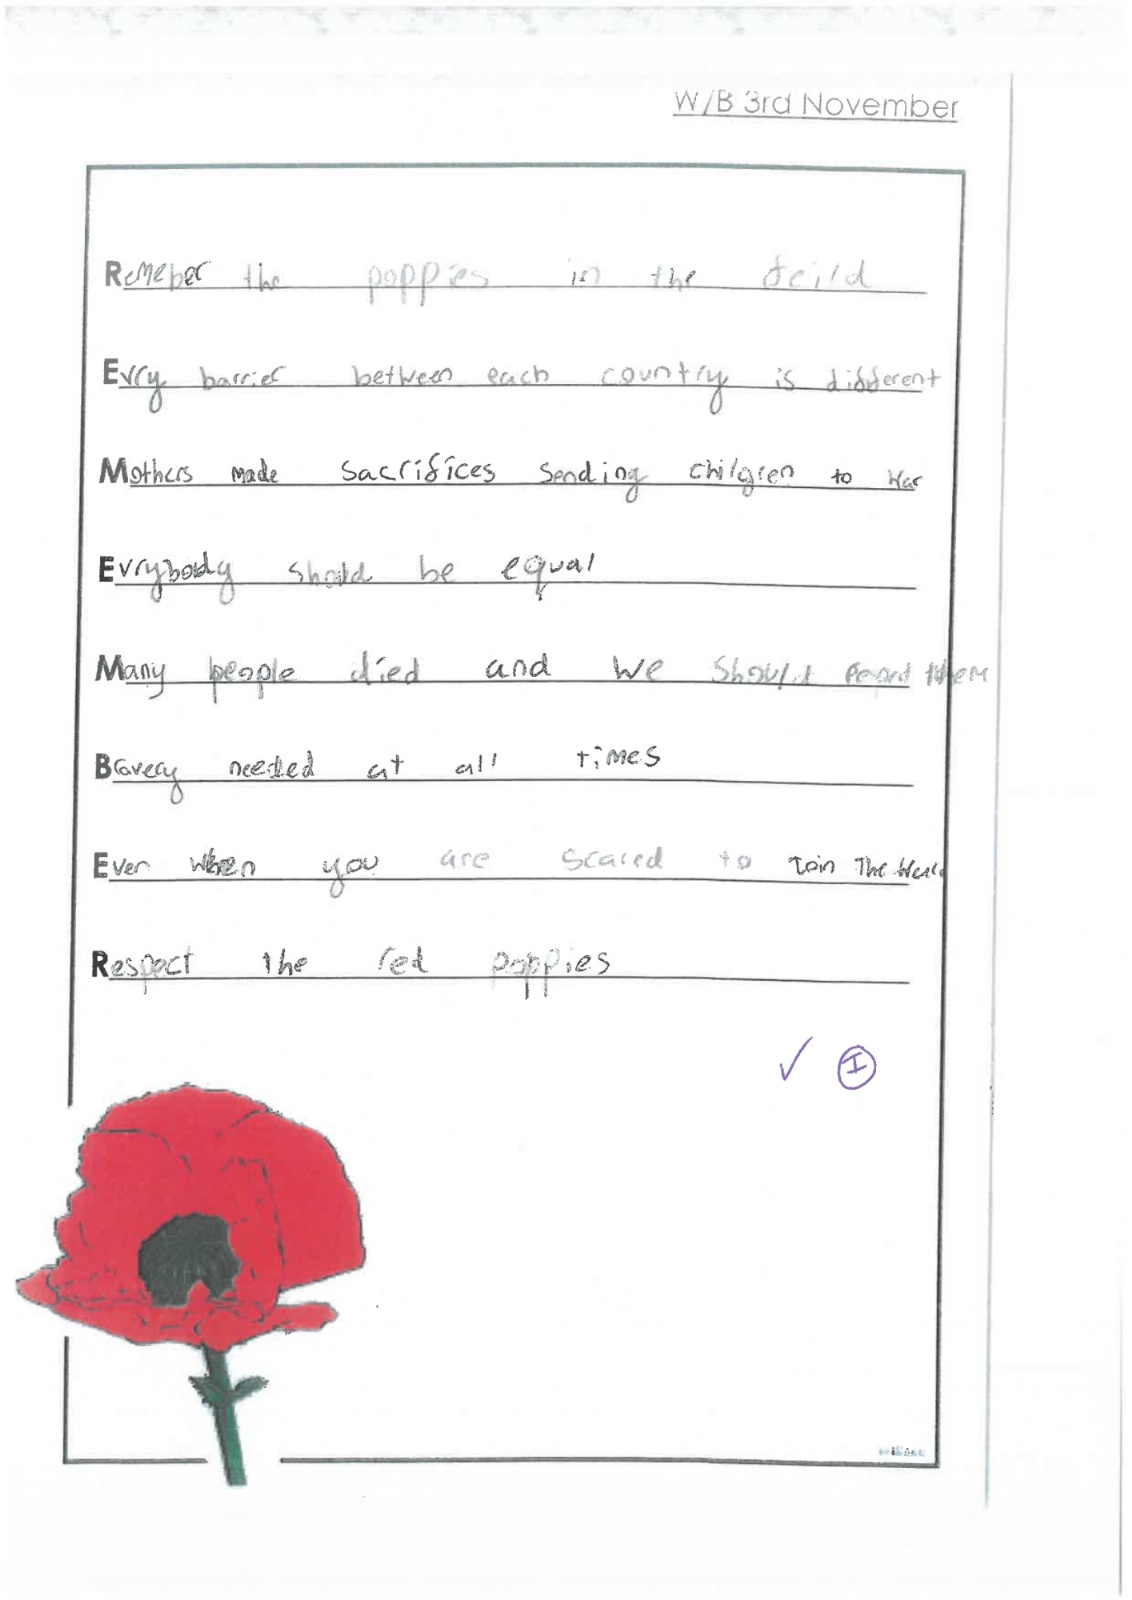 W/B 3rd November
Remeber the poppies in the feild
Evry barrier between each country is different
Mothers made sacrifices sending chilgren to war
Evrybody should be equal
Many people died and we should them
Bravery needed at all times
Even when you are scared to join The
Respect the red poppies
I